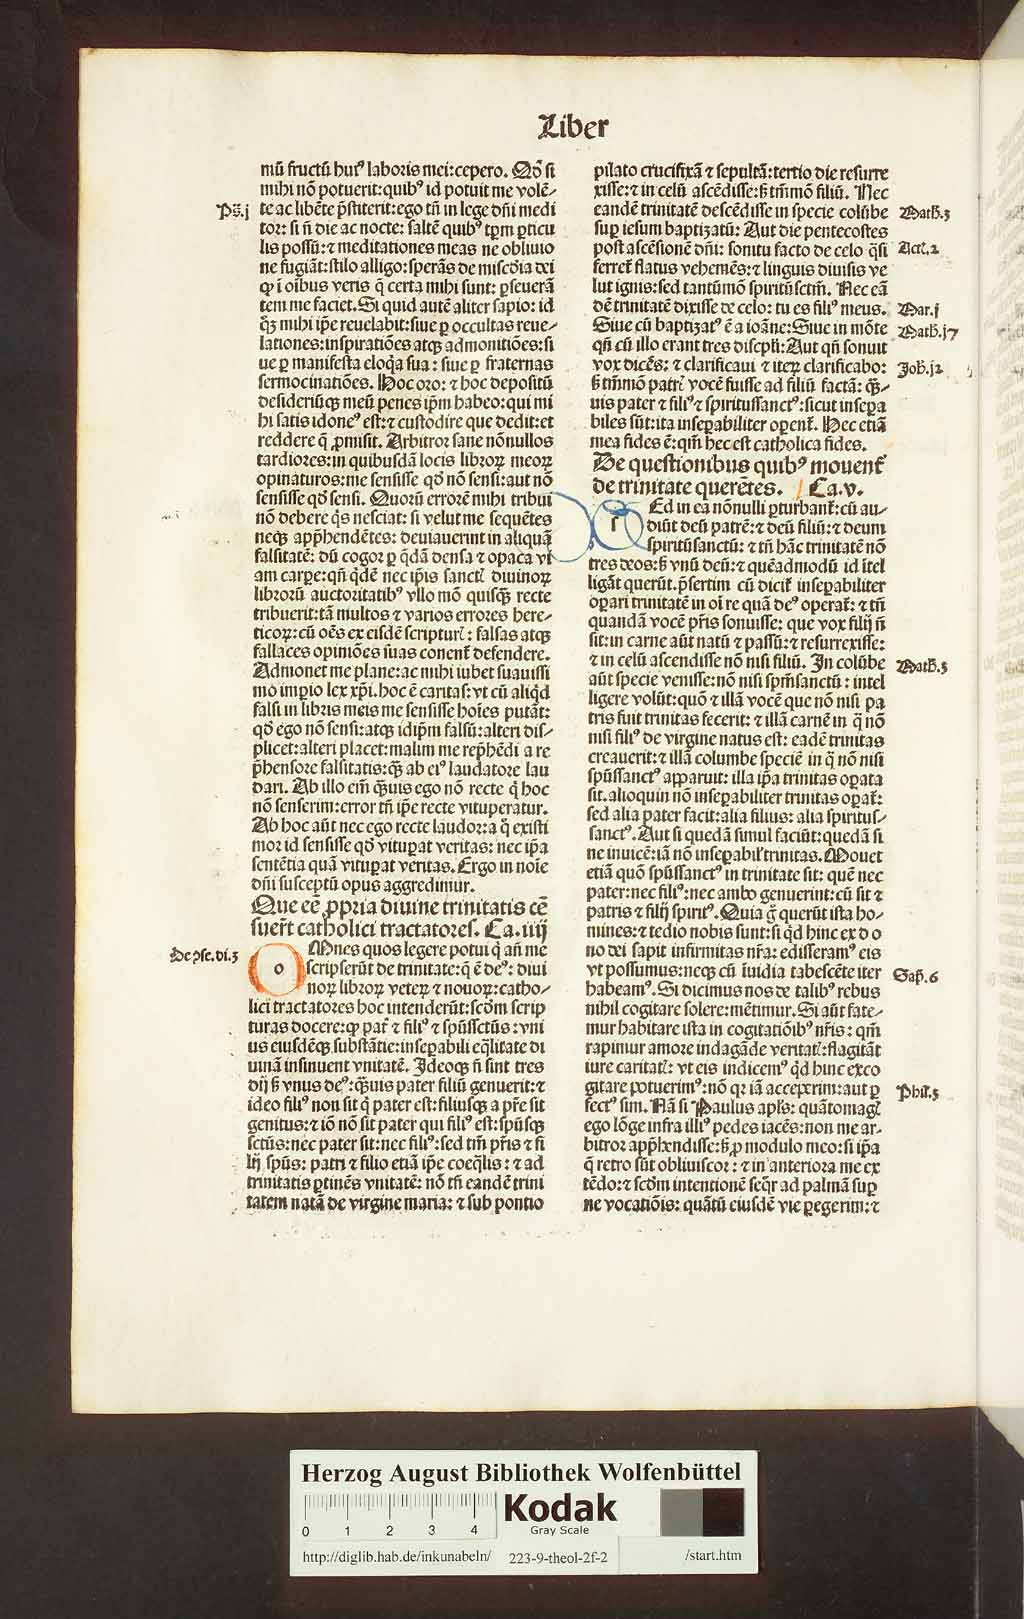 Liber
mū fructū huiꝰ laboris mei: cepero. Qđ si
mihi nō potuerit: quibꝰ id potuit me volē-
Ps. j
te ac libēte p̄stiterit: ego tn̄ in lege dn̄i medi
tor: si n̄ die ac nocte: saltē quibꝰ tp̄m ꝑticu
lis possū: ⁊ meditationes meas ne obliuio
ne fugiāt: stilo alligo: sperās de miscđia dei
ꝙ ī oībus veris q̄ certa mihi sunt: ꝑseuerā
tem me faciet. Si quid autē aliter sapio: id
qz mihi ip̄e reuelabit: siue ꝑ occultas reue-
lationes: inspiratiōes atqz admonitiōes: si
ue ꝑ manifesta eloq̄a sua: siue ꝑ fraternas
sermocinatiōes. Hoc oro: ⁊ hoc depositū
desideriūqz meū penes ip̄m habeo: qui mi
hi satis idoneꝰ est: ⁊ custodire que dedit: et
reddere q̄ ꝓmisit. Arbitror sane nōnullos
tardiores: in quibusdā locis libroꝝ meoꝝ
opinaturos: me sensisse qđ nō sensi: aut nō
sensisse qđ sensi. Quorū errorē mihi tribui
nō debere q̄s nesciat: si velut me sequētes
neqz app̄hendētes: deuiauerint in aliquā
falsitatē: dū cogor ꝑ q̄dā densa ⁊ opaca vi
am carpe: qn̄ q̄dē nec ip̄is sanctꝭ diuinoꝝ
librorū auctoritatibꝰ vllo mō quisqz recte
tribuerit: tā multos ⁊ varios errores here-
ticoꝝ: cū oēs ex eisdē scripturꝭ: falsas atqz
fallaces opiniōes suas conent̄ defendere.
Admonet me plane: ac mihi iubet suauissi
mo imꝑio lex xp̄i. hoc ē caritas: vt cū aliq̄d
falsi in libris meis me sensisse hoīes putāt:
qđ ego nō sensi: atqz idip̄m falsū: alteri dis-
plicet: alteri placet: malim me rep̄hēdi a re
p̄hensore falsitatis: q̄z ab eiꝰ laudatore lau
dari. Ab illo em̄ q̄uis ego nō recte q̄ hoc
nō senserim: error tn̄ ip̄e recte vituperatur.
Ab hoc aūt nec ego recte laudor: a q̄ existi
mor id sensisse qđ vituꝑat veritas: nec ip̄a
sentētia quā vituꝑat veritas. Ergo in noīe
dn̄i susceptū opus aggredimur.
Que eē ꝓpria diuine trinitatis cē
suer̄t catholici tractatores. Ca. iiij
De ꝯse. di. 3
o
Mnes quos legere potui q̄ an̄ me
scripserūt de trinitate: q̄ ē deꝰ: diui
noꝝ libroꝝ veterꝝ ⁊ nouoꝝ: catho-
lici tractatores hoc intenderūt: scđm scrip
turas docere: ꝙ pat̄ ⁊ filiꝰ ⁊ spūssctūs: vni
us eiusdēqz substātie: inseꝑabili eq̄litate di
uinā insinuent vnitatē. Ideoqz n̄ sint tres
dij sꝫ vnus deꝰ: q̄uis pater filiū genuerit: ⁊
ideo filiꝰ non sit q̄ pater est: filiusqz a pr̄e sit
genitus: ⁊ iō nō sit pater qui filiꝰ est: spūsqz
sctūs: nec pater sit: nec filiꝰ: sed tm̄ pr̄is ⁊ fi
lij spūs: patri ⁊ filio etiā ip̄e coeq̄lis: ⁊ ad
trinitatis ꝑtinēs vnitatē: nō tn̄ eandē trini
tatem natā de virgine maria: ⁊ sub pontio
pilato crucifixā ⁊ sepultā: tertio die resurre
xisse: ⁊ in celū ascēdisse: sꝫ tm̄mō filiū. Nec
eandē trinitatē descēdisse in specie colūbe
Math. 3
suꝑ iesum baptizatū: Aut die pentecostes
post ascēsionē dn̄i: sonitu facto de celo q̄si
Act. 2
ferret̄ flatus vehemēs: ⁊ linguis diuisis ve
lut ignis: sed tantūmō spiritūsctm̄. Nec eā
dē trinitatē dixisse de celo: tu es filiꝰ meus.
Mar. j
Siue cū baptizatꝰ ē a ioāne: Siue in mōte
Math. j7
qn̄ cū illo erant tres discpl̄i: Aut qn̄ sonuit
vox dicēs: ⁊ clarificaui ⁊ iterꝝ clarificabo:
Joh. j2
sꝫ tm̄mō patrꝭ vocē fuisse ad filiū factā: q̄z-
uis pater ⁊ filiꝰ ⁊ spiritussanctꝰ: sicut inseꝑa
biles sūt: ita inseꝑabiliter oꝑent̄. Hec etiā
mea fides ē: qm̄ hec est catholica fides.
De questionibus quibꝰ mouent̄
de trinitate querētes. Ca. v.
s
Ed in ea nōnulli ꝑturbant̄: cū au-
diūt deū patrē: ⁊ deū filiū: ⁊ deum
spiritūsanctū: ⁊ tn̄ hāc trinitatē nō
tres deos: sꝫ vnū deū: ⁊ quēadmodū id ītel
ligāt querūt. p̄sertim cū dicit̄ inseꝑabiliter
oꝑari trinitatē in oī re quā deꝰ operat̄: ⁊ tn̄
quandā vocē pr̄is sonuisse: que vox filij n̄
sit: in carne aūt natū ⁊ passū: ⁊ resurrexisse:
⁊ in celū ascendisse nō nisi filiū. In colūbe
Math. 3
aūt specie venisse: nō nisi spm̄sanctū: intel
ligere volūt: quō ⁊ illā vocē que nō nisi pa
tris fuit trinitas fecerit: ⁊ illā carnē in q̄ nō
nisi filiꝰ de virgine natus est: eadē trinitas
creauerit: ⁊ illā columbe speciē in q̄ nō nisi
spūssanctꝰ apparuit: illa ip̄a trinitas oꝑata
sit. alioquin nō inseꝑabiliter trinitas oꝑat̄:
sed alia pater facit: alia filius: alia spiritus-
sanctꝰ. Aut si quedā simul faciūt: quedā si
ne inuicē: iā nō inseꝑabil̄ trinitas. Mouet
etiā quō spūssanctꝰ in trinitate sit: quē nec
pater: nec filiꝰ: nec ambo genuerint: cū sit ⁊
patris ⁊ filij spiritꝰ. Quia gͦ querūt ista ho-
mines: ⁊ tedio nobis sunt: si q̄d hinc ex do
no dei sapit infirmitas nr̄a: edisseramꝰ eis
vt possumus: neqz cū īuidia tabescēte iter
Sap. 6
habeamꝰ. Si dicimus nos de talibꝰ rebus
nihil cogitare solere: mētimur. Si aūt fate-
mur habitare ista in cogitatiōibꝰ nr̄is: qm̄
rapimur amore indagāde veritatꝭ: flagitāt
iure caritatꝭ: vt eis indicemꝰ q̄d hinc exco
gitare potuerimꝰ: nō qꝛ iā acceperim: aut ꝑ
Phil. 3
fectꝰ sim. Nā si Paulus apl̄s: quātomagꝭ
ego lōge infra illiꝰ pedes iacēs: non me ar-
bitror app̄hendisse: sꝫ ꝓ modulo meo: si ip̄a
q̄ retro sūt obliuiscor: ⁊ in anteriora me ex
tēdo: ⁊ scđm intentionē seq̄r ad palmā suꝑ
ne vocatiōis: quātū eiusdē vie ꝑegerim: ⁊
Herzog August Bibliothek Wolfenbüttel
0 1 2 3 4
Kodak
Gray Scale
http://diglib.hab.de/inkunabeln/ 223-9-theol-2f-2 /start.htm